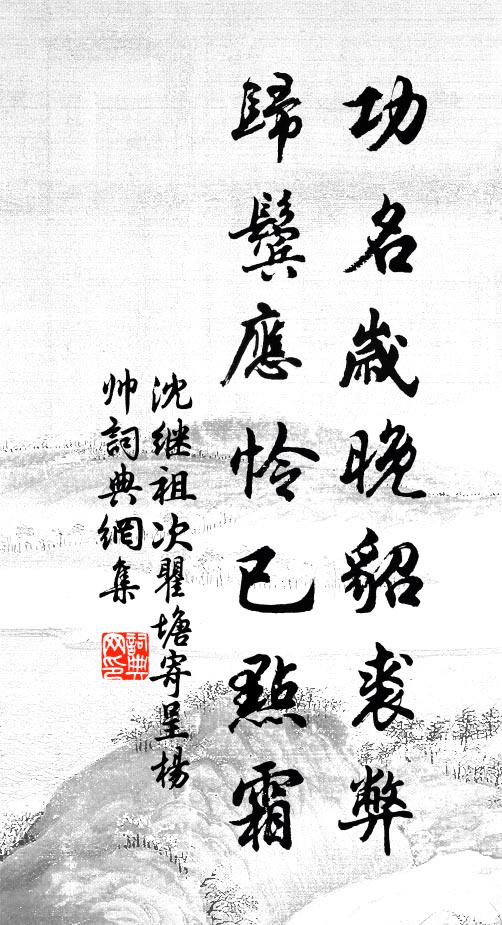 功名歲晚貂裘弊
歸鬢應怜已點霜
沈继祖次瞿塘寄呈楊
帅詞典網集
詞典网印